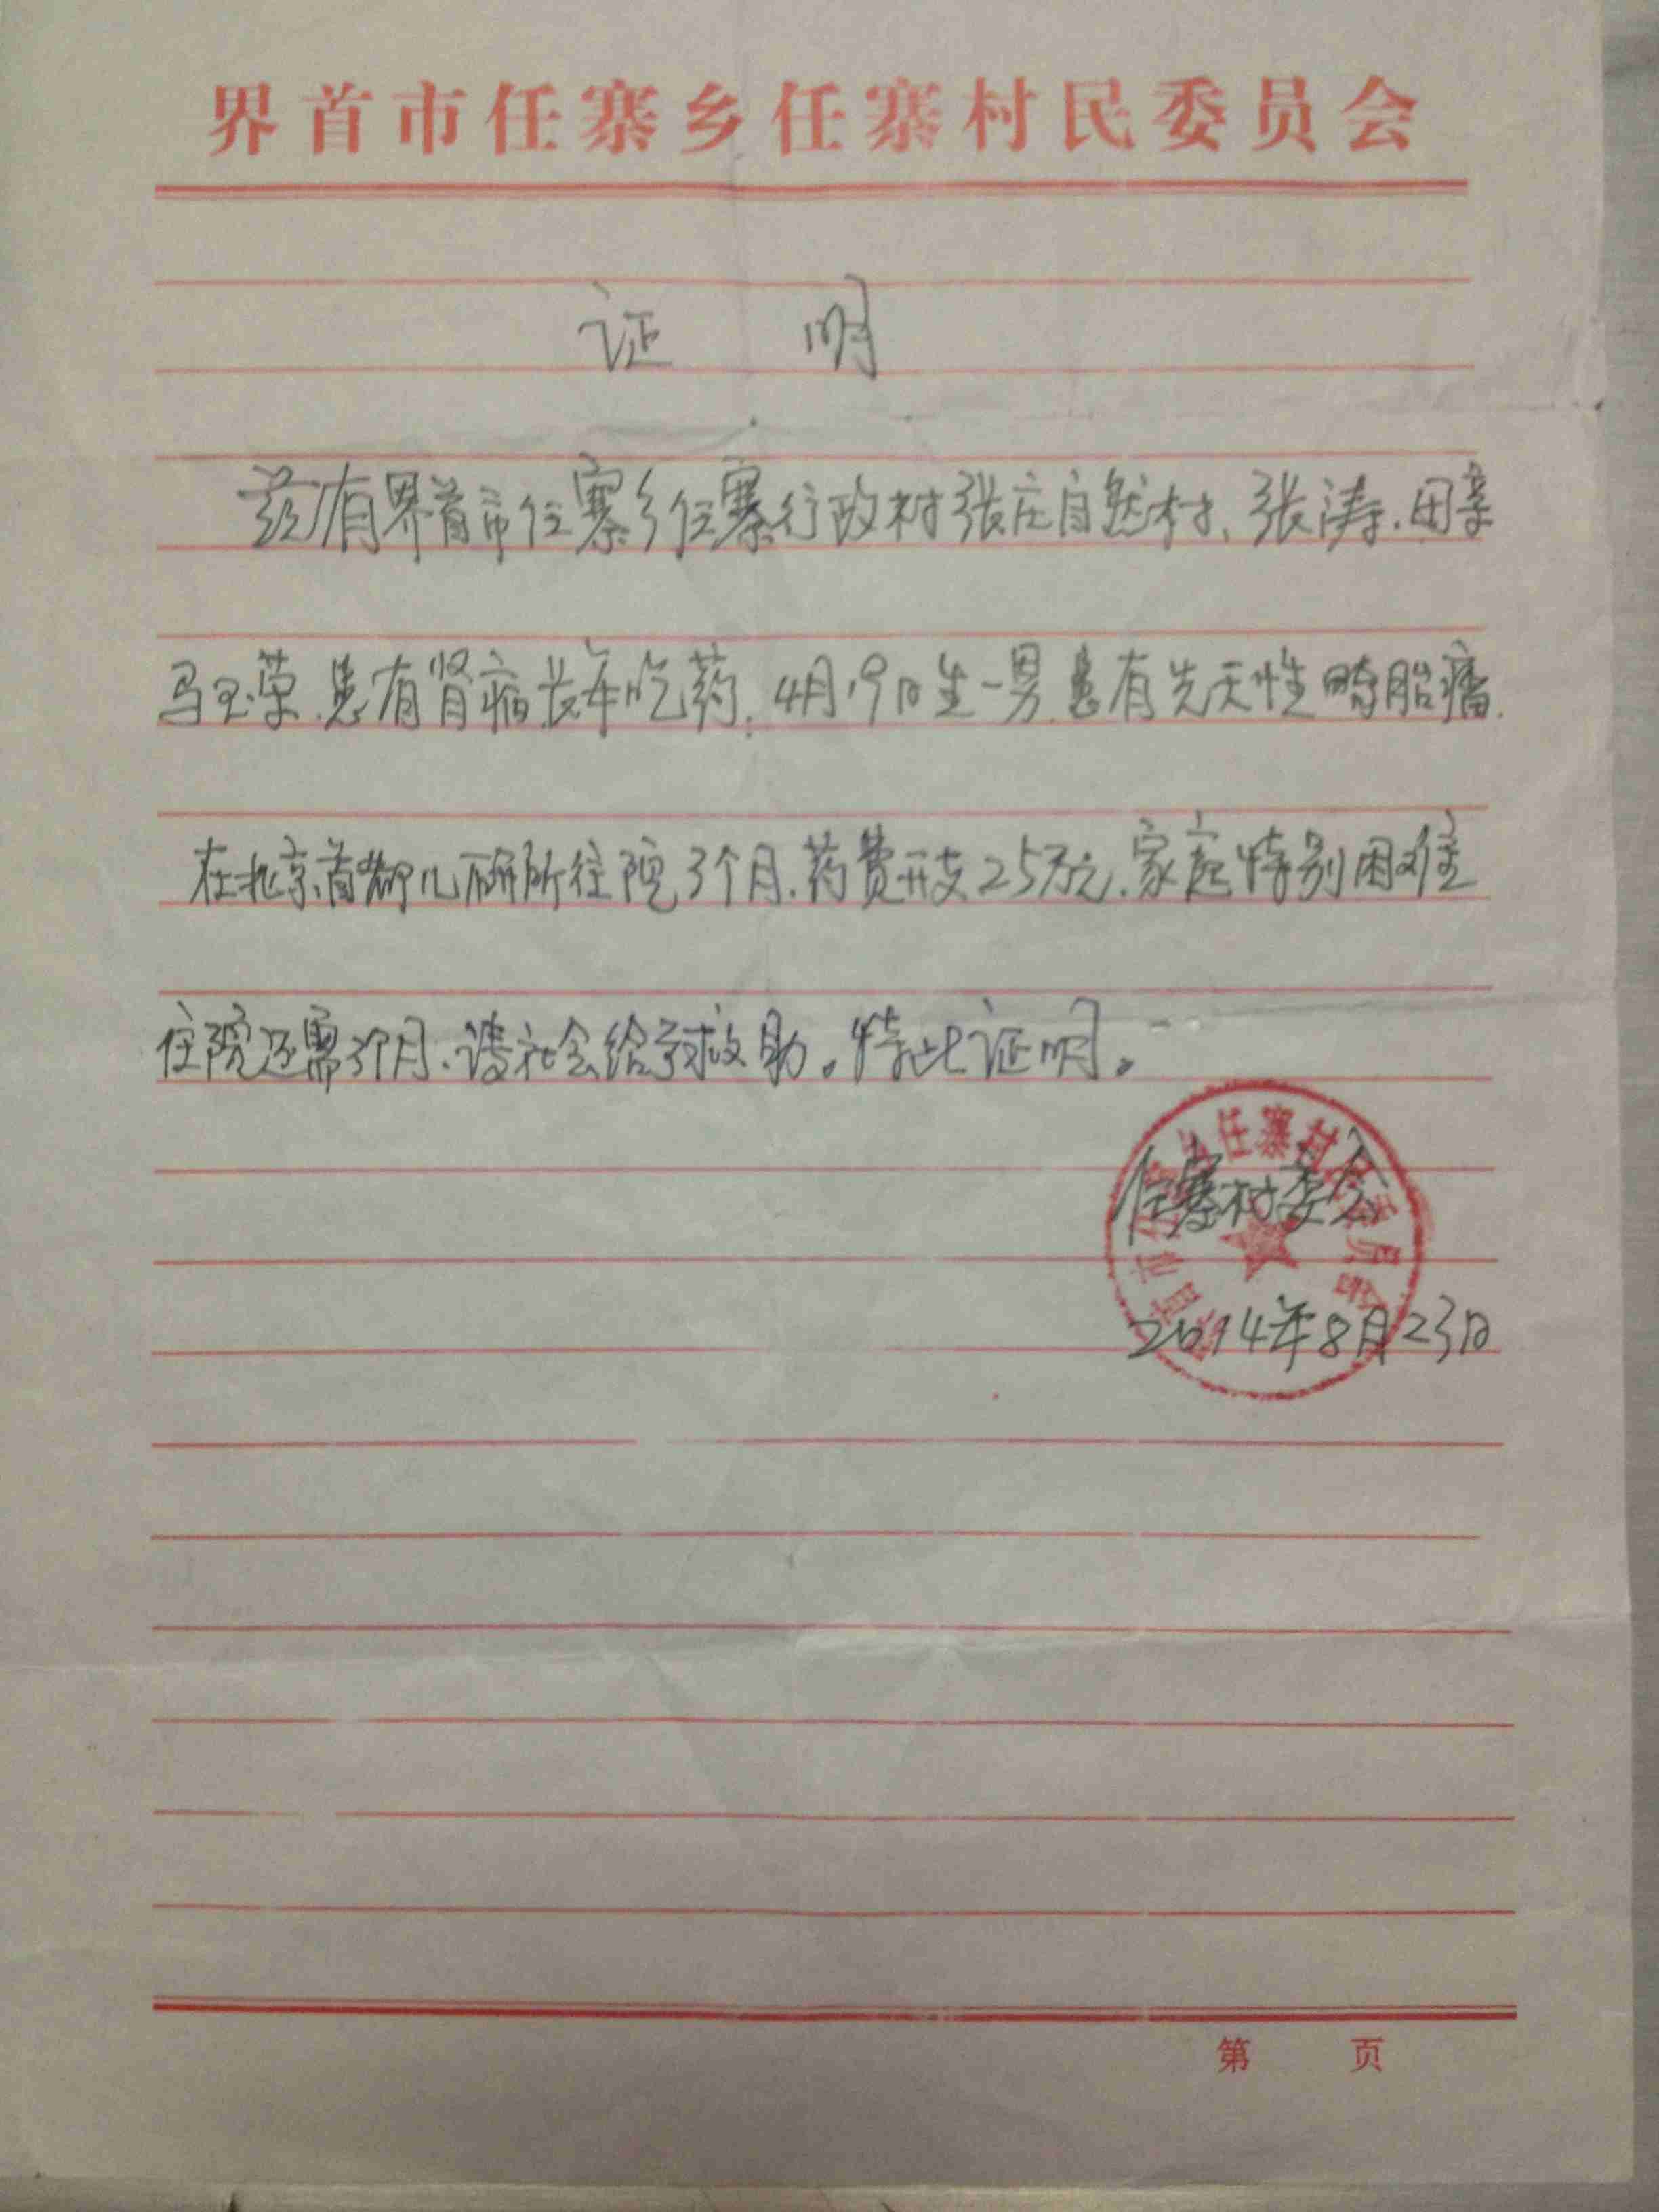 界首市任寨乡任寨村民委员会
证 明
兹有界首市任寨乡任寨行政村张庄自然村、张涛.因亲
马玉荣.患有肾病长年吃药.4月19日生一男.患有先天性畸胎瘤.
在北京首都儿研所住院3个月.药费开支25万元.家庭特别困难
住院还需3个月.请社会给予救助。特此证明。
任寨村委会
2014年8月23日
第 页